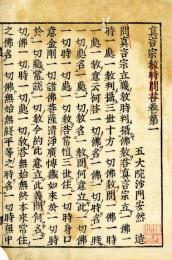 眞言宗教時問答卷第一
五大院沙門安然 造
問眞言宗立幾教時判攝佛教答眞言宗立一佛
一時一處一教判攝三世十方一切佛教問一佛一時
一處一教意云何答一切佛名一佛一切時名一時一
切處名一處一切教名一教
意金剛一切諸佛菩薩清淨廣博藏如來於一切時
於一切處常說一切教今約此意立此義問何名一
切佛一切時一切處一切教答無始無終本來常住
之佛名一切佛無始無終平等之時名一切時無中